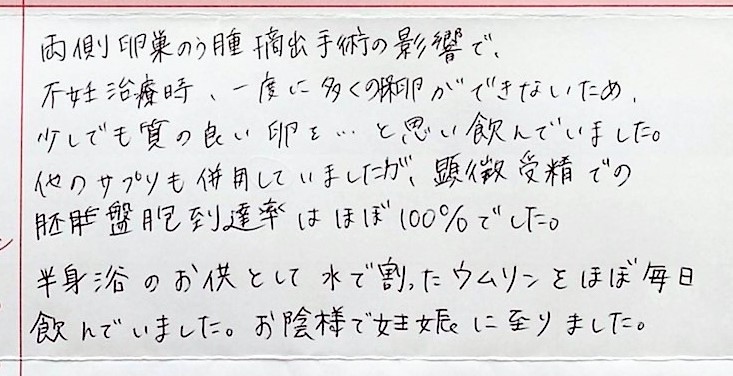 両側卵巣のう腫摘出手術の影響で、
不妊治療時、一度に多くの採卵ができないため、
少しでも質の良い卵を…と思い飲んでいました。
他のサプリも併用していましたが、顕微受精での
胚盤胞到達率はほぼ100%でした。
半身浴のお供として水で割ったウムリンをほぼ毎日
飲んでいました。お陰様で妊娠に至りました。